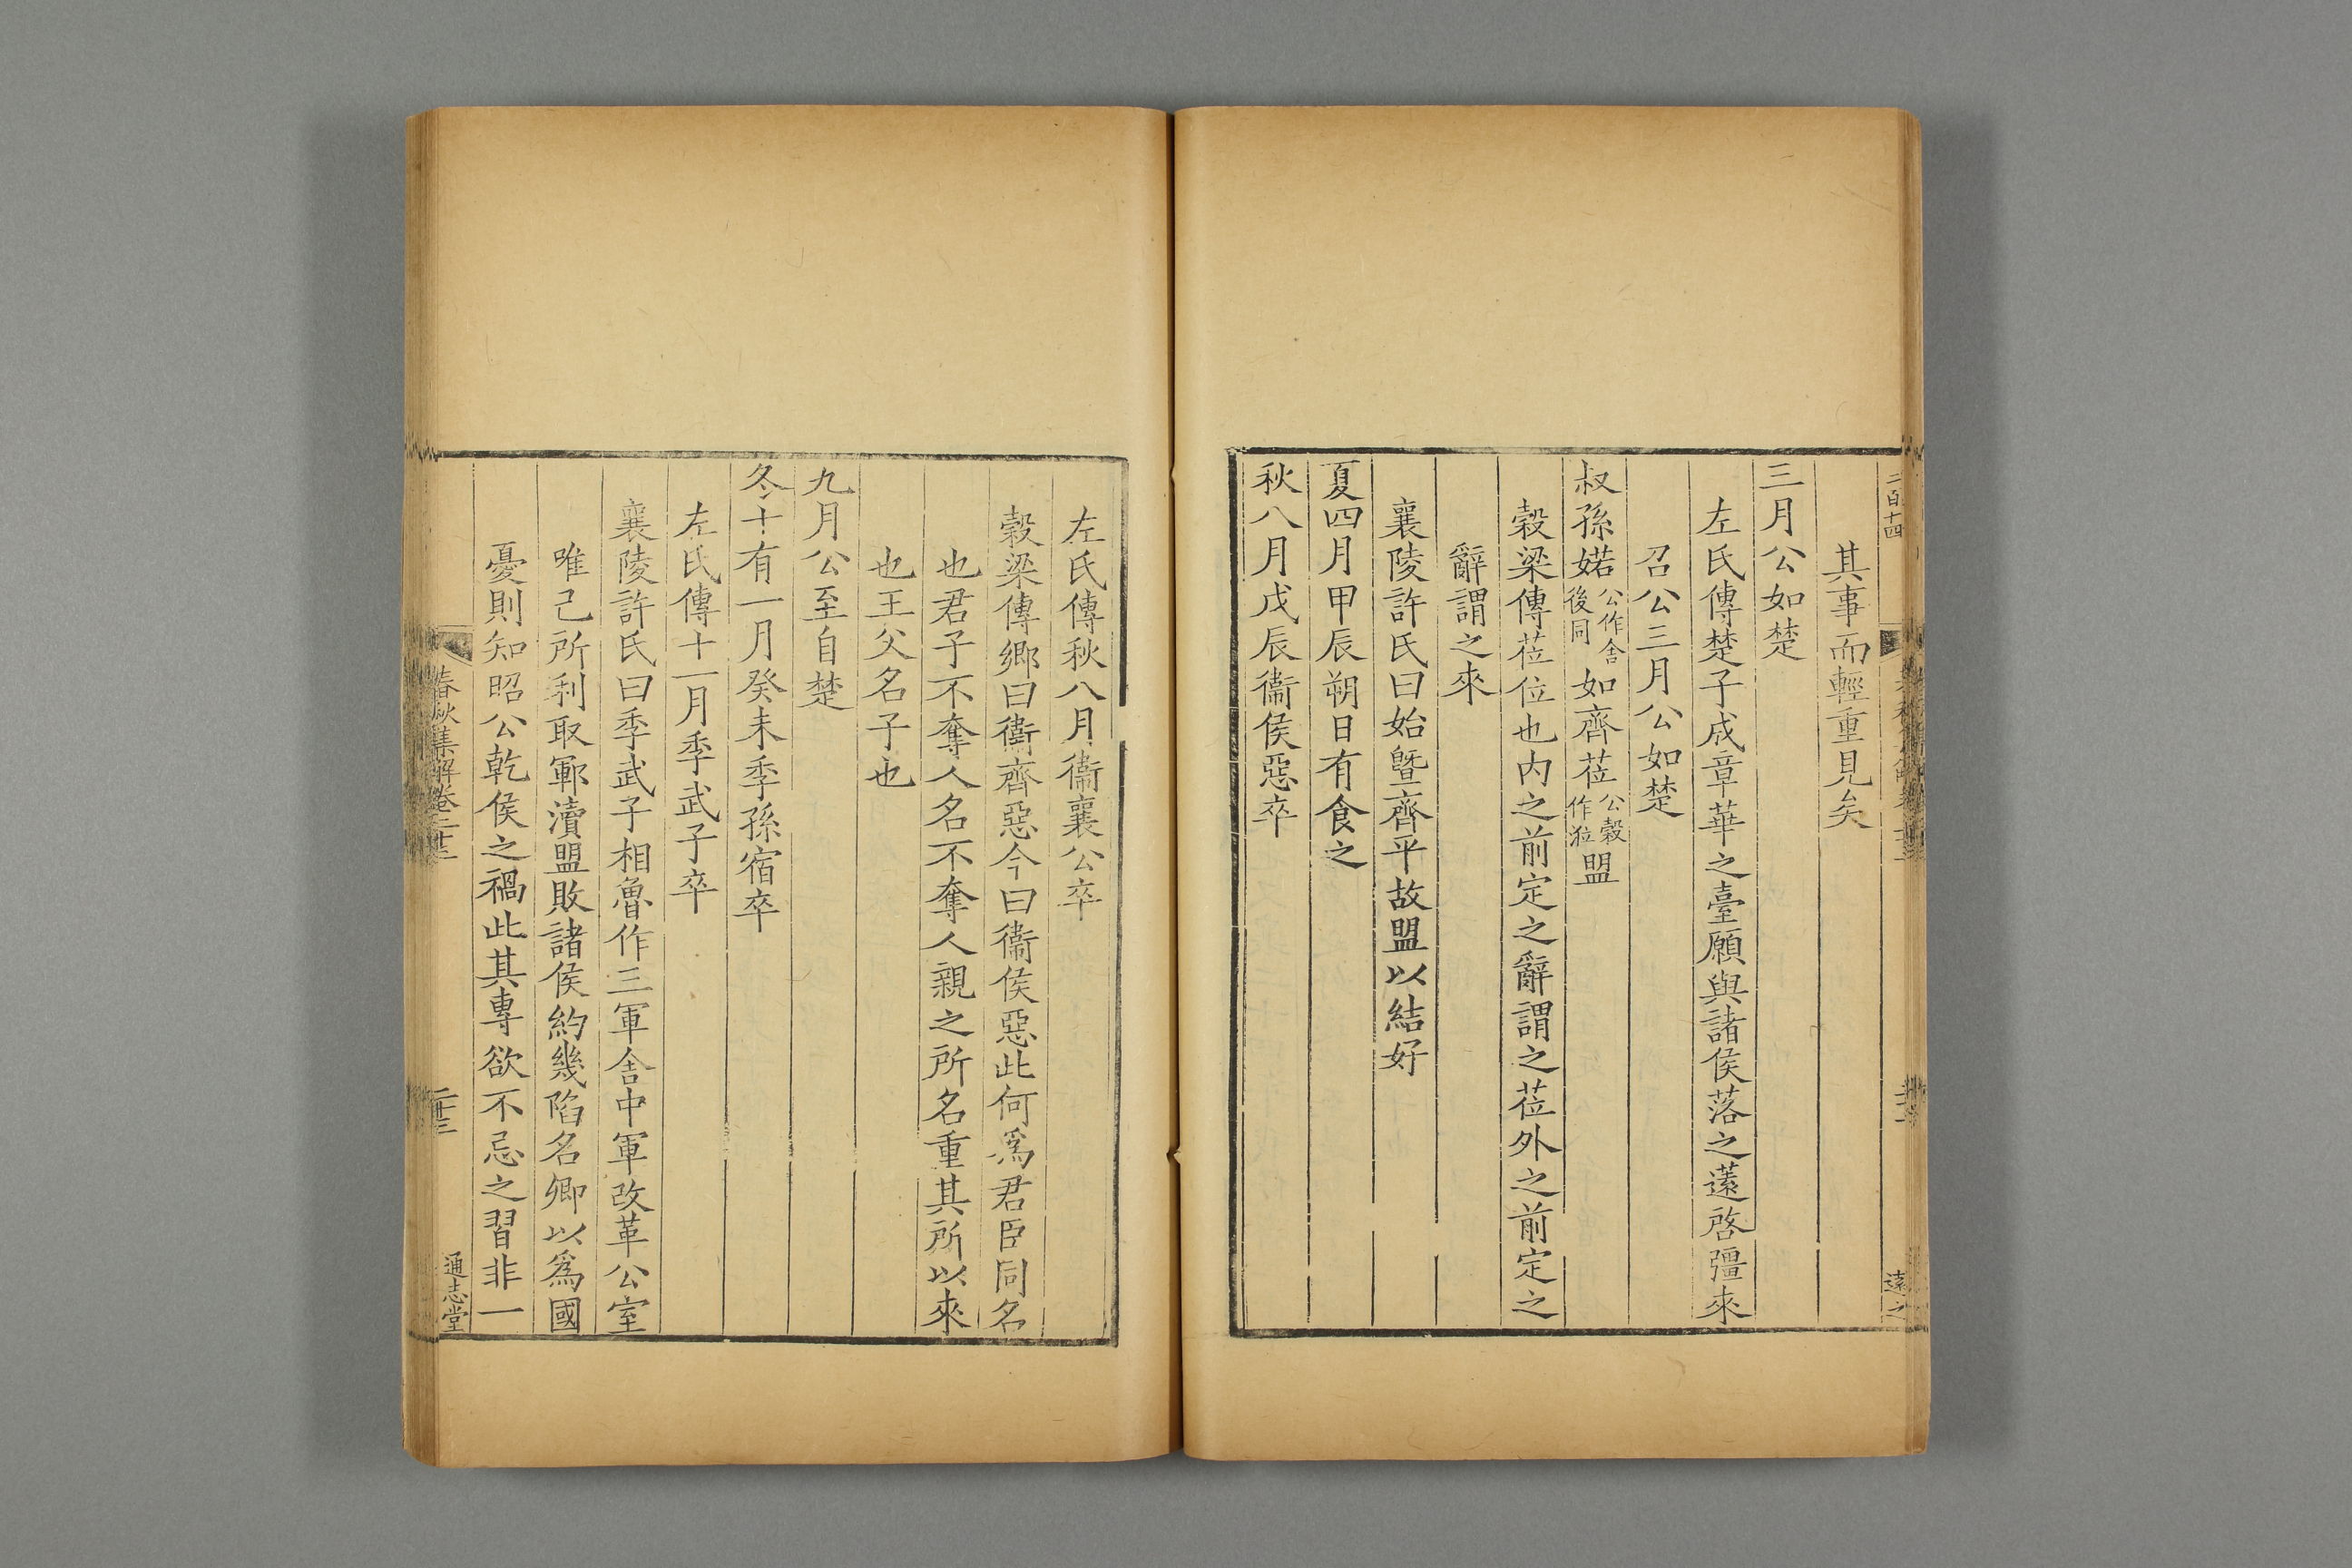 二百十四
遠之
其事而輕重見矣
三月公如楚
左氏傳楚子成章華之臺願與諸侯落之薳啓彊來
召公三月公如楚
叔孫婼公作舍後同如齊莅公穀作涖盟
穀梁傳莅位也内之前定之辭謂之莅外之前定之
辭謂之來
襄陵許氏曰始曁齊平故盟以結好
夏四月甲辰朔日有食之
秋八月戊辰衞侯惡卒
左氏傳秋八月衞襄公卒
穀梁傳鄉曰衞齊惡今曰衞侯惡此何爲君臣同名
也君子不奪人名不奪人親之所名重其所以來
也王父名子也
九月公至自楚
冬十有一月癸未季孫宿卒
左氏傳十一月季武子卒
襄陵許氏曰季武子相魯作三軍舍中軍改革公室
唯己所利取鄆瀆盟敗諸侯約幾陷名卿以爲國
憂則知昭公乾侯之禍此其專欲不忌之習非一
春秋集解卷二十三
二十三
通志堂